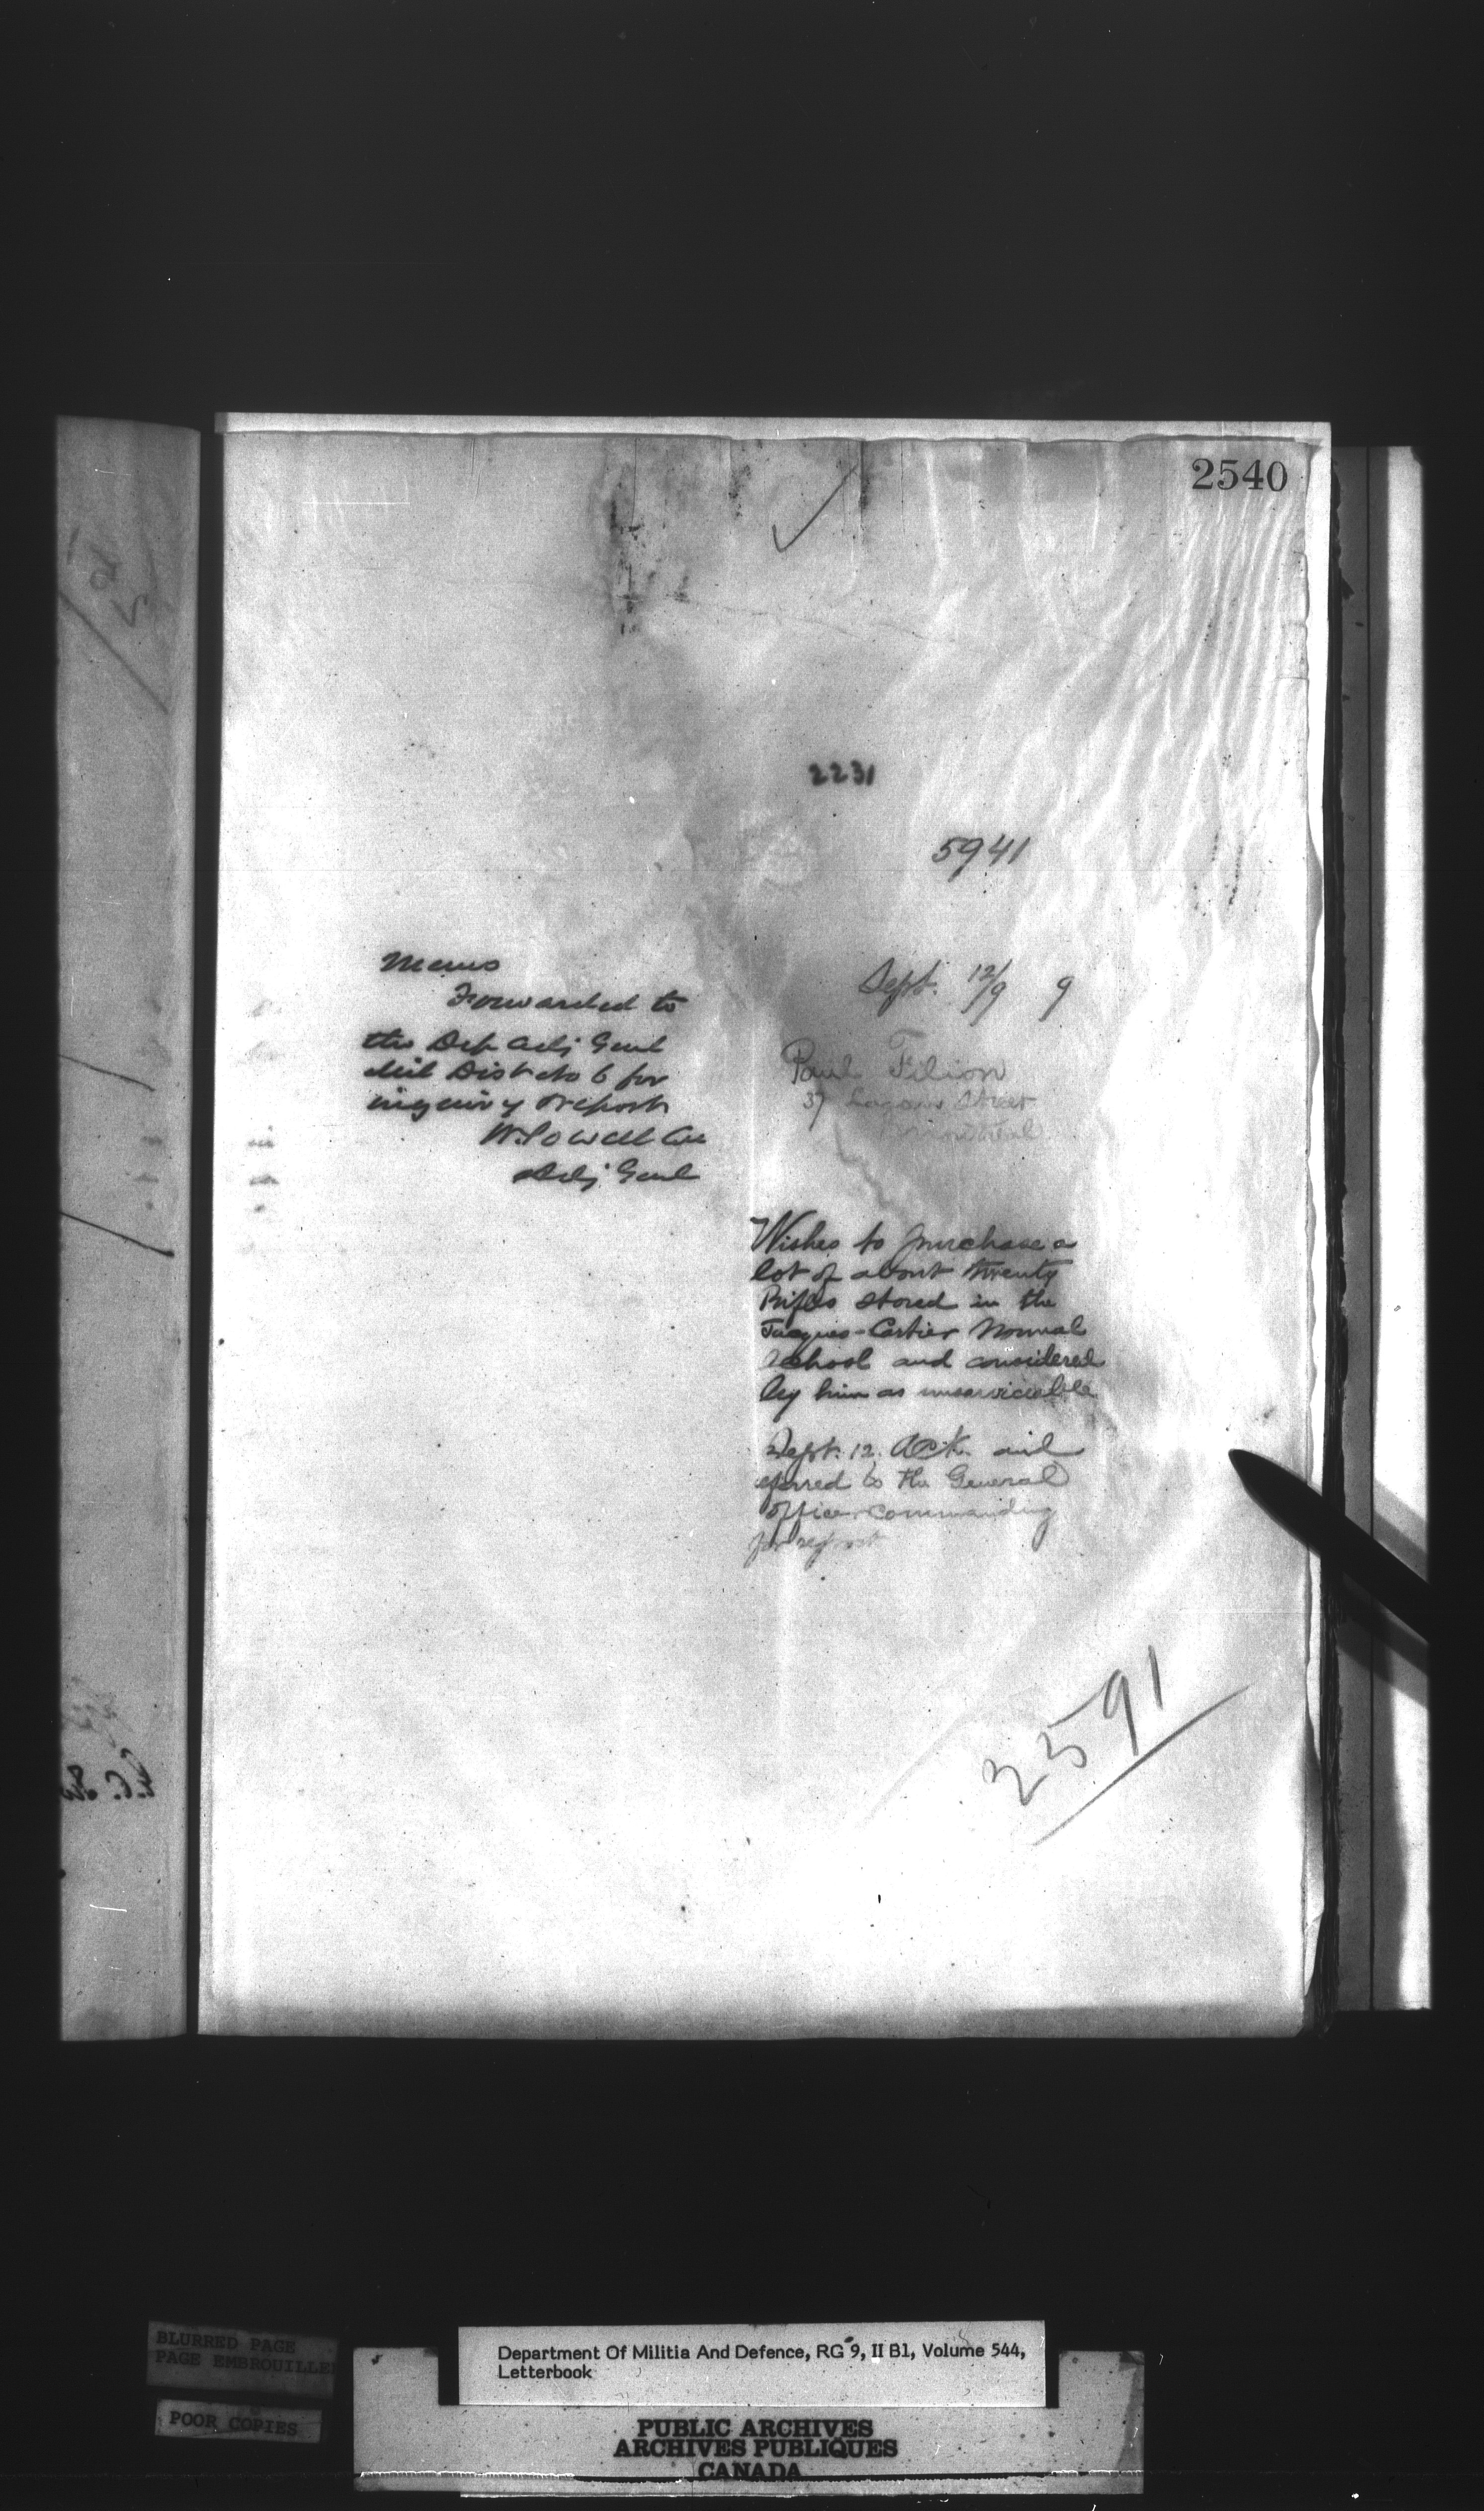 2540
2231
5941
Memo
Forwarded to
the Dep Adj Genl
Mil Dist No 6 for
inquiry & report
W. Powell Col
Adj Genl
Sept. 12/9 9
Paul Filion
37 Street
Montreal
Wishes to purchase a
lot of about twenty
Rifles stored in the
Jacques-Cartier Normal
School and considered
by him as unserviceable
Sept. 12. Ack. and
referred to the General
Officer Commanding
for report
2591
BLURRED PAGE
PAGE EMBROUILLEE
POOR COPIES
Department Of Militia And Defence, RG 9, II B1, Volume 544,
Letterbook
PUBLIC ARCHIVES
ARCHIVES PUBLIQUES
CANADA